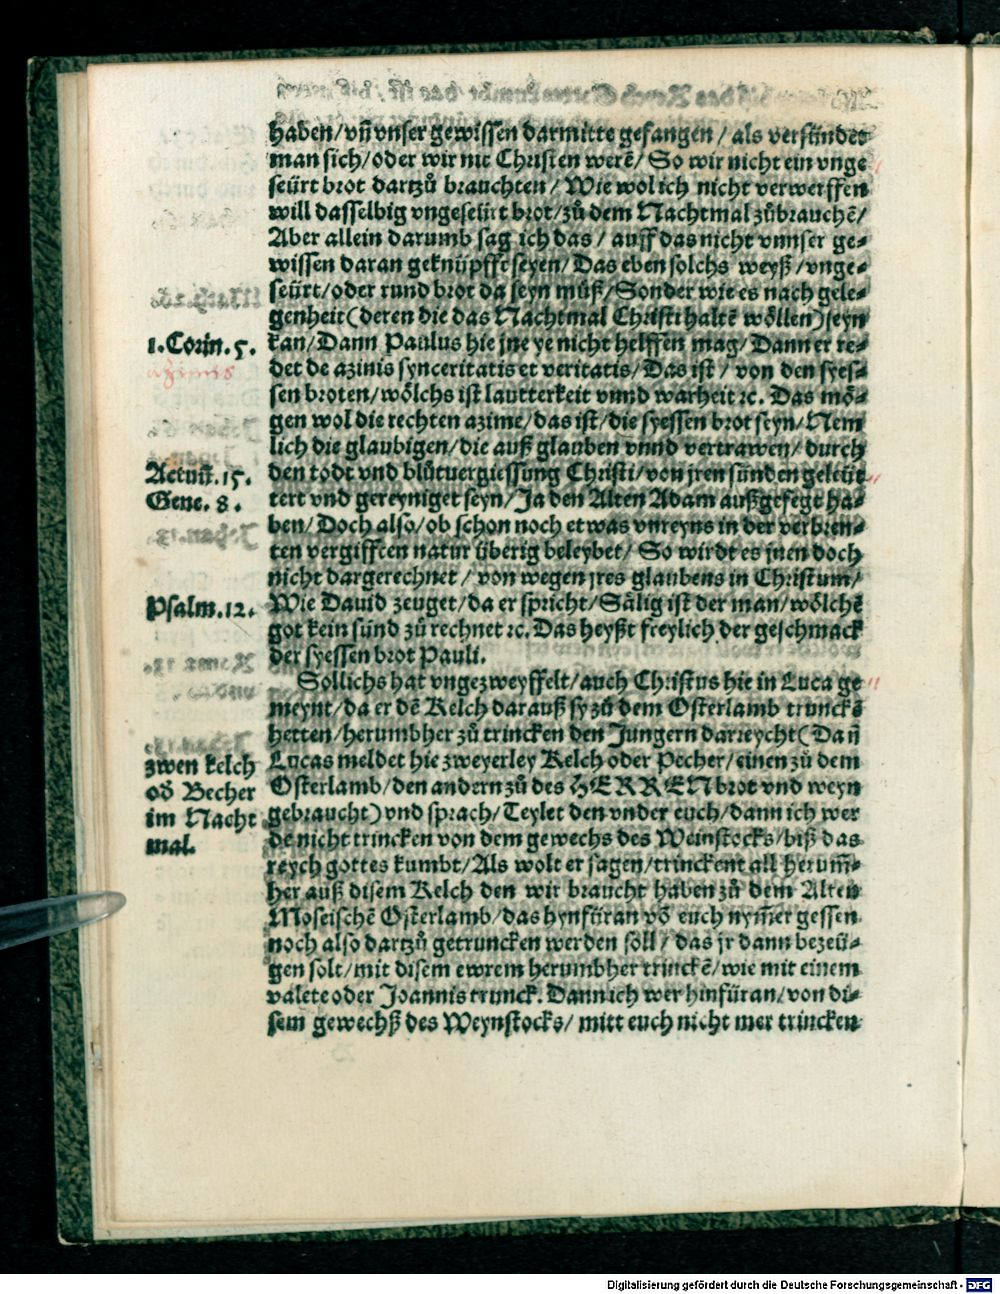 haben/vñ vnser gewissen darmitte gefangen / als verstündes
man sich/oder wir nit Christen werẽ/ So wir nicht ein vnge
seürt brot dartzů brauchten/ Wie wol ich nicht verwerffen
will dasselbig vngeseürt brot/zů dem Nachtmal zůbrauchẽ/
Aber allein darumb sag ich das / auff das nicht vnnser ge⸗
wissen daran geknüpfft seyen/ Das eben solchs weyß /vnge⸗
seürt/oder rund brot da seyn müß/ Sonder wie es nach gele⸗
genheit(deren die das Nachtmal Christi haltẽ wöllen)seyn
1.Corin.5. kan/ Dann Paulus hie jne ye nicht helffen mag/ Dann er re⸗
azimis det de azinis synceritatis et veritatis/ Das ist / von den syes⸗
sen broten/wölchs ist lautterkeit vnnd warheit ꝛc. Das mö⸗
gen wol die rechten azime/das ist/die syessen brot seyn/ Nem
lich die glaubigen/die auß glauben vnnd vertrawen/ durch
Actuũ.15. den todt vnd blůtuergiessung Christi/von jren sünden geleüt
Gene. 8. tert vnd gereyniget seyn/ Ja den Alten Adam außgefegt ha⸗
ben/ Doch also/ob schon noch etwas vnreyns in der verbren⸗
ten vergifften natur überig beleybet/ So wirdt es jnen doch
nicht dargerechnet / von wegen jres glaubens in Christum/
Psalm.12. Wie Dauid zeuget/da er spricht/Sälig ist der man/wölchẽ
got kein sünd zů rechnet ꝛc. Das heyßt freylich der geschmack
der syessen brot Pauli.
Sollichs hat vngezweyffelt/auch Christus hie in Luca ge
meynt/da er dẽ Kelch darauß sy zů dem Osterlamb trunckẽ
hetten/herumbher zů trincken den Jungern darreycht(Dañ
zwen kelch Lucas meldet hie zweyerley Kelch oder Pecher/einen zů dem
od' Becher Osterlamb/den andern zů des HERREN brot vnd weyn
im Nacht gebraucht)vnd sprach/Teylet den vnder euch/dann ich wer
mal. de nicht trincken von dem gewechs des Weinstocks/biß das
reych gottes kumbt/Als wolt er sagen/trinckent all herum̃⸗
her auß disem Kelch den wir braucht haben zů dem Alten
Moseischẽ Osterlamb/das hynfüran võ euch nym̃er gessen
noch also dartzů getruncken werden soll / das jr dann bezeü⸗
gen solt/mit disem ewrem herumbher trinckẽ/wie mit einem
valete oder Joannis trunck. Dann ich wer hinfüran/von di⸗
sem gewechß des Weynstocks/ mitt euch nicht mer trincken
Digitalisierung gefördert durch die Deutsche Forschungsgemeinschaft - DFG